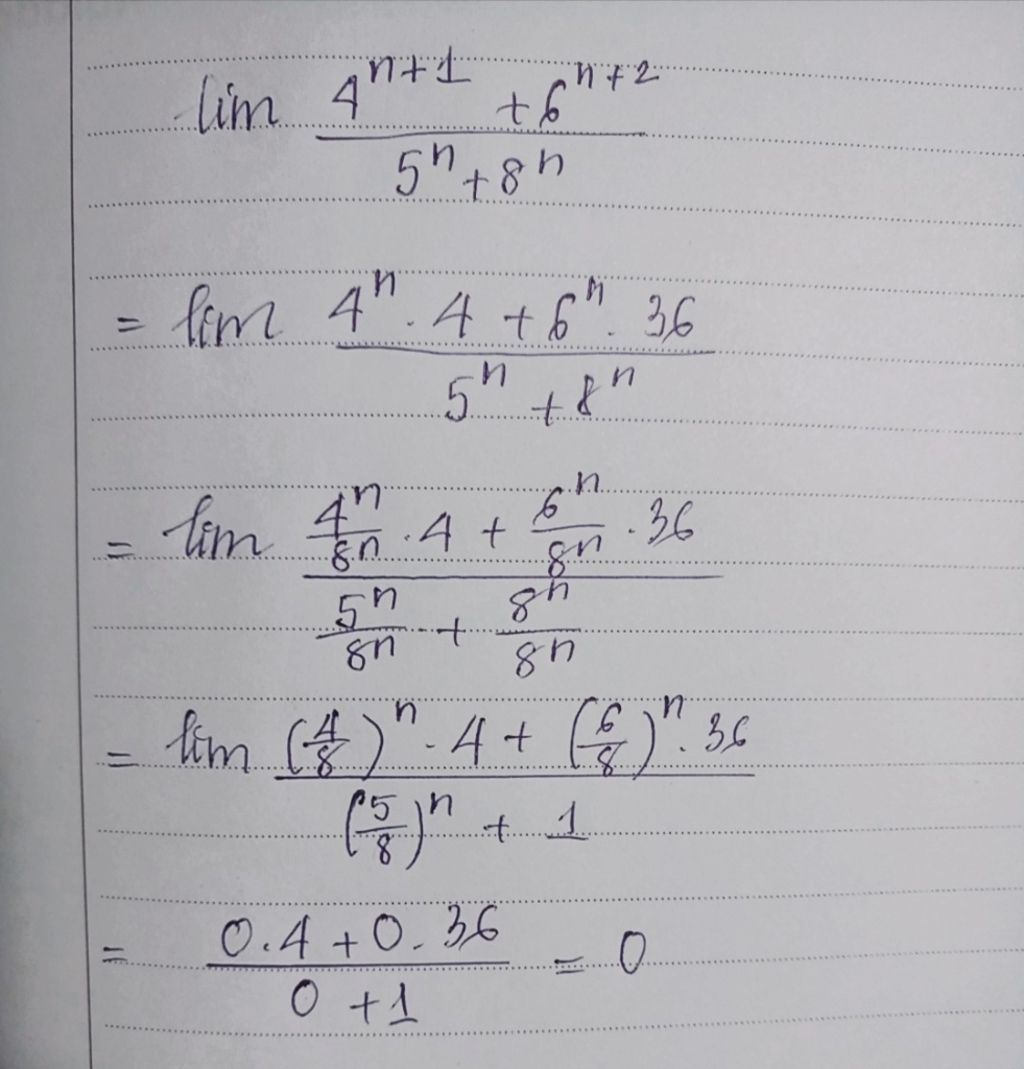 lim (4^{n+1} + 6^{n+2}) / (5^n + 8^n)
= lim (4^n . 4 + 6^n . 36) / (5^n + 8^n)
= lim (4^n/8^n . 4 + 6^n/8^n . 36) / (5^n/8^n + 8^n/8^n)
= lim ((4/8)^n . 4 + (6/8)^n . 36) / ((5/8)^n + 1)
= (0.4 + 0.36) / (0 + 1) = 0